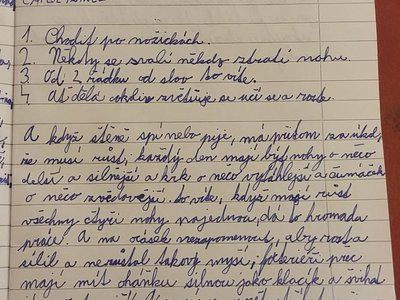 1. Chodit po nožičkách.
2. Někdy se svalí někdy ztratí nohu.
3. Od 2 řádku od slov to víše.
4. Ať dělá cokoliv zvětšuje se učí se a roste.
A když štěně spí nebo pije, má přitom za úkol,
že musí růst, každý den mají být nohy o něco
delší a silnější a krk o něco vytáhlejší a čumáček
o něco zvědavější. to víte, když mají růst
všechny čtyři nohy najednou, dá to hromadu
práce. A na ocásek nezapomenout, aby rostl a
sílil a nezůstal takový myší, foxteriéři přec
mají mít oháňku silnou jako klacík a švihat